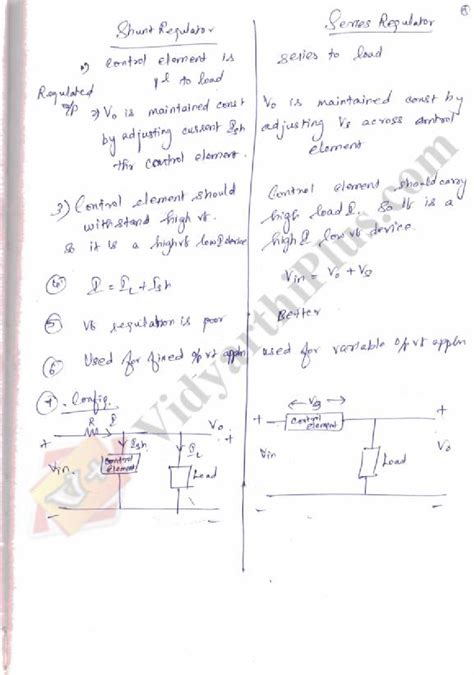 Shunt Regulator
1) Control element is
||l to load
Regulated
o/p
2) Vo is maintained const
by adjusting current Ish
thr control element.
3) Control element should
withstand high vt.
so it is a high vt low I device
(4) I = IL + Ish
(5) Vt regulation is poor
(6) Used for fixed o/p vt appln
(7) Config.
R
I
Vo
+
+
Ish
IL
Vin
control
element
Load
-
-
Series Regulator
series to load
Vo is maintained const by
adjusting Vs across control
element
Control element should carry
high load I. So it is a
high I low vt device.
Vin = Vo + Vs
Better
used for variable o/p vt appln
Vs
control
element
+
+
Vin
Vo
Load
-
-
VidyarthiPlus.com
V+